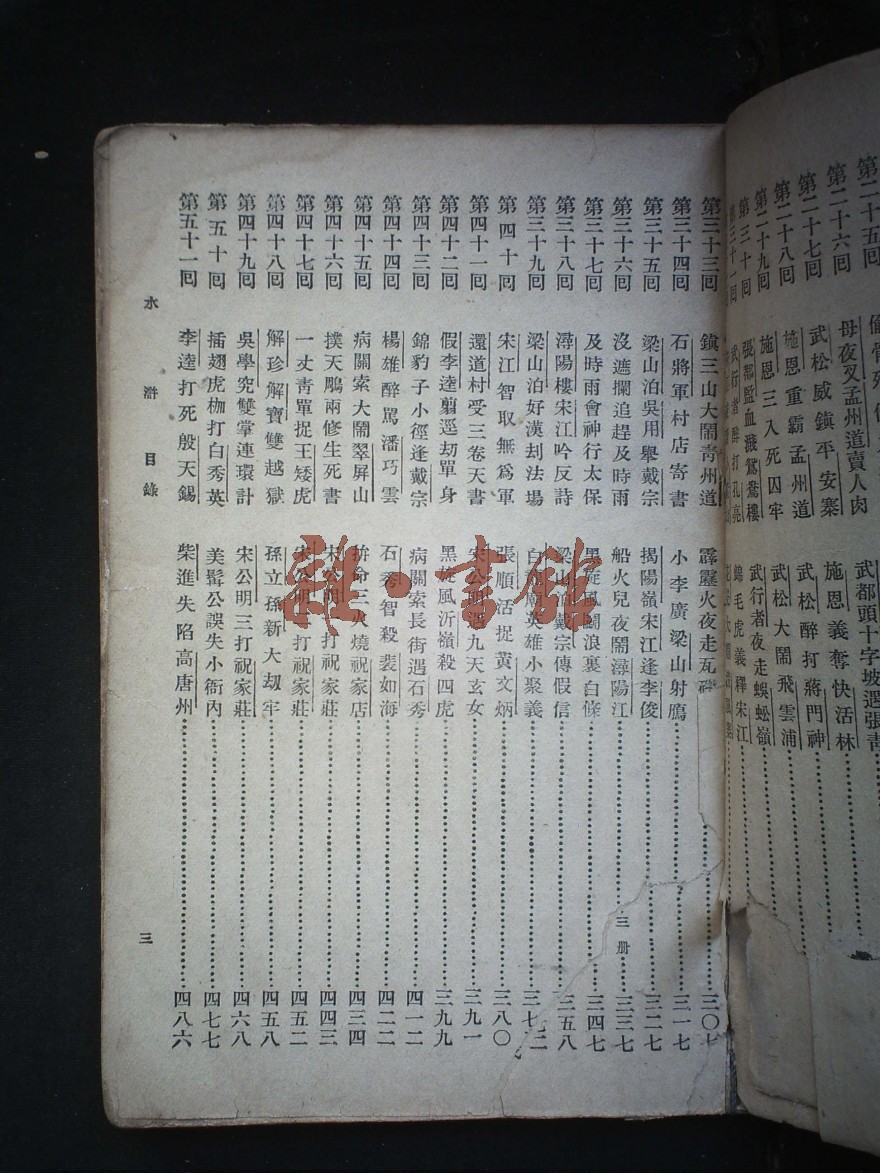 第二十五回
第二十六回 母夜叉孟州道賣人肉 武都頭十字坡遇張青
第二十七回 武松威鎮平安寨 施恩義奪快活林
第二十八回 施恩重霸孟州道 武松醉打蔣門神
第二十九回 施恩三入死囚牢 武松大鬧飛雲浦
第三十回 張都監血濺鴛鴦樓 武行者夜走蜈蚣嶺
第三十一回 武行者醉打孔亮 錦毛虎義釋宋江
第三十三回 鎮三山大鬧青州道 霹靂火夜走瓦礫 三〇七
第三十四回 石將軍村店寄書 小李廣梁山射鴈 三一七
第三十五回 梁山泊吳用舉戴宗 揭陽嶺宋江逢李俊 三二七
第三十六回 沒遮攔追趕及時雨 船火兒夜鬧潯陽江 三三七
三册
第三十七回 及時雨會神行太保 黑旋風鬬浪裏白條 三四七
第三十八回 潯陽樓宋江吟反詩 梁山泊戴宗傳假信 三五八
第三十九回 梁山泊好漢刦法場 白龍廟英雄小聚義
第四十回 宋江智取無爲軍 張順活捉黃文炳 三八〇
第四十一回 還道村受三卷天書 宋公明遇九天玄女 三九一
第四十二回 假李逵翦逕劫單身 黑旋風沂嶺殺四虎 三九九
第四十三回 錦豹子小徑逢戴宗 病關索長街遇石秀 四一二
第四十四回 楊雄醉罵潘巧雲 石秀智殺裴如海 四二二
第四十五回 病關索大鬧翠屏山 拚命三火燒祝家店 四三四
第四十六回 撲天鵰兩修生死書 宋公明一打祝家莊 四四三
第四十七回 一丈青單捉王矮虎 宋公明二打祝家莊 四五二
第四十八回 解珍解寶雙越獄 孫立孫新大劫牢 四五八
第四十九回 吳學究雙掌連環計 宋公明三打祝家莊 四六八
第五十回 插翅虎枷打白秀英 美髯公誤失小衙內 四七七
第五十一回 李逵打死殷天錫 柴進失陷高唐州 四八六
水滸目錄
三
雜·書館